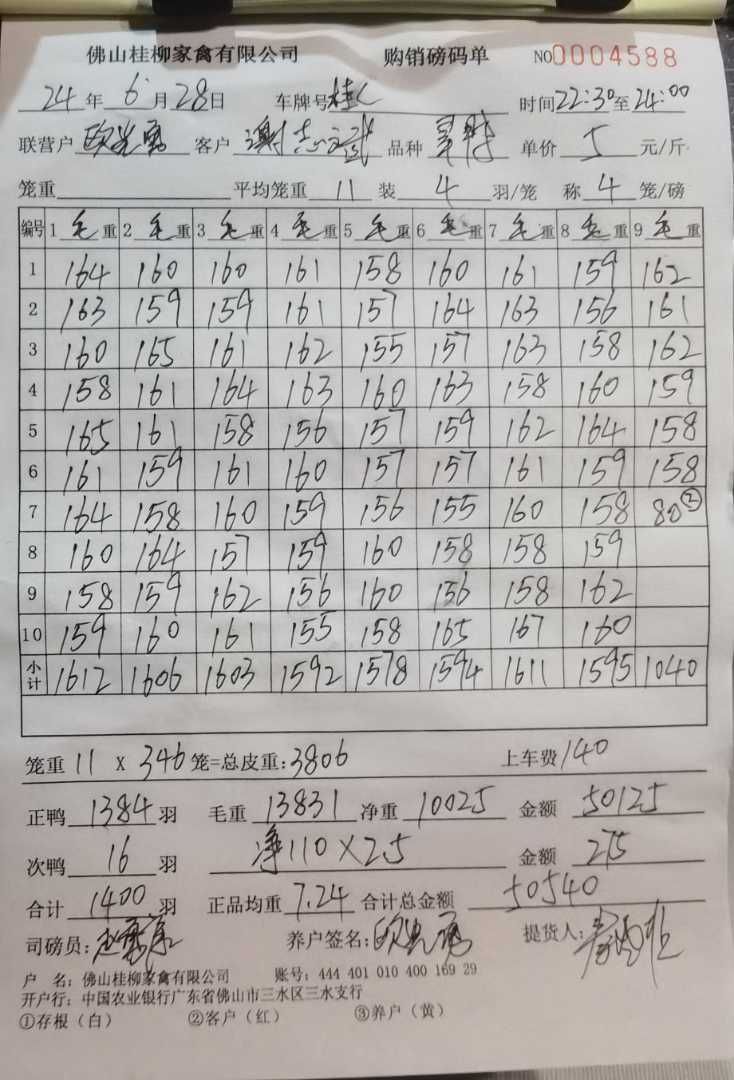 佛山桂柳家禽有限公司 购销磅码单 NO0004588
24年6月28日 车牌号桂L 时间22:30至24:00
联营户 欧 客户 谢志 品种 单价 5 元/斤
笼重 平均笼重 11 装 4 羽/笼 称 4 笼/磅
编号 1毛重 2毛重 3毛重 4毛重 5毛重 6毛重 7毛重 8毛重 9毛重
1 164 160 160 161 158 160 161 159 162
2 163 159 159 161 157 164 163 156 161
3 160 165 161 162 155 157 163 158 162
4 158 161 164 163 160 163 158 160 159
5 165 161 158 156 157 159 162 164 158
6 161 159 161 160 157 157 161 159 158
7 164 158 160 159 156 155 160 158 80②
8 160 164 157 159 160 158 158 159
9 158 159 162 156 160 156 158 162
10 159 160 161 155 158 165 167 160
小计 1612 1606 1603 1592 1578 1594 1611 1595 1040
笼重 11 X 346 笼=总皮重:3806 上车费140
正鸭 1384 羽 毛重 13831 净重 10025 金额 50125
次鸭 16 羽 净110×25 金额 275
合计 1400 羽 正品均重 7.24 合计总金额 50540
司磅员: 养户签名:欧 提货人:
户 名:佛山桂柳家禽有限公司 账号:444 401 010 400 169 29
开户行:中国农业银行广东省佛山市三水区三水支行
①存根(白) ②客户(红) ③养户(黄)